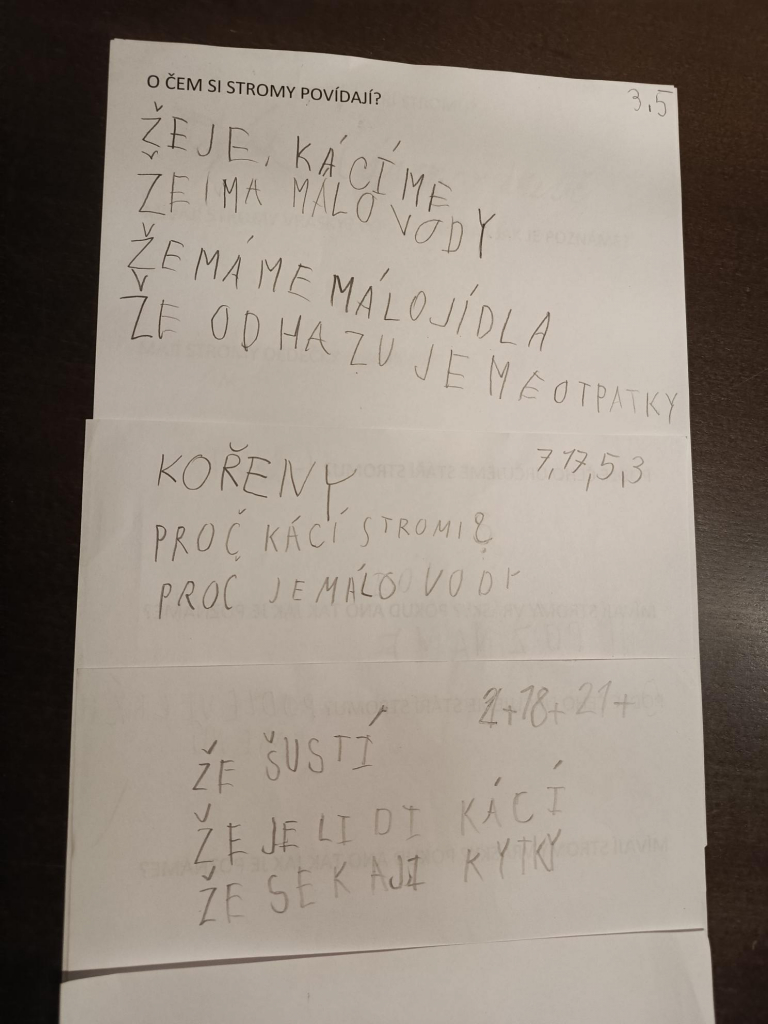 O ČEM SI STROMY POVÍDAJÍ?
3,5
ŽEJE, KÁCÍME
ŽE IMA MÁLO VODY
ŽEMÁME MÁLOJÍDLA
ŽE ODHAZUJEME OTPATKY
KOŘENY
7,17,5,3
PROČ KÁCÍ STROMI?
PROČ JE MÁLO VODY
21+18+21+
ŽE ŠUSTÍ
ŽE JE LIDI KÁCÍ
ŽE SEKAJI KYTKY